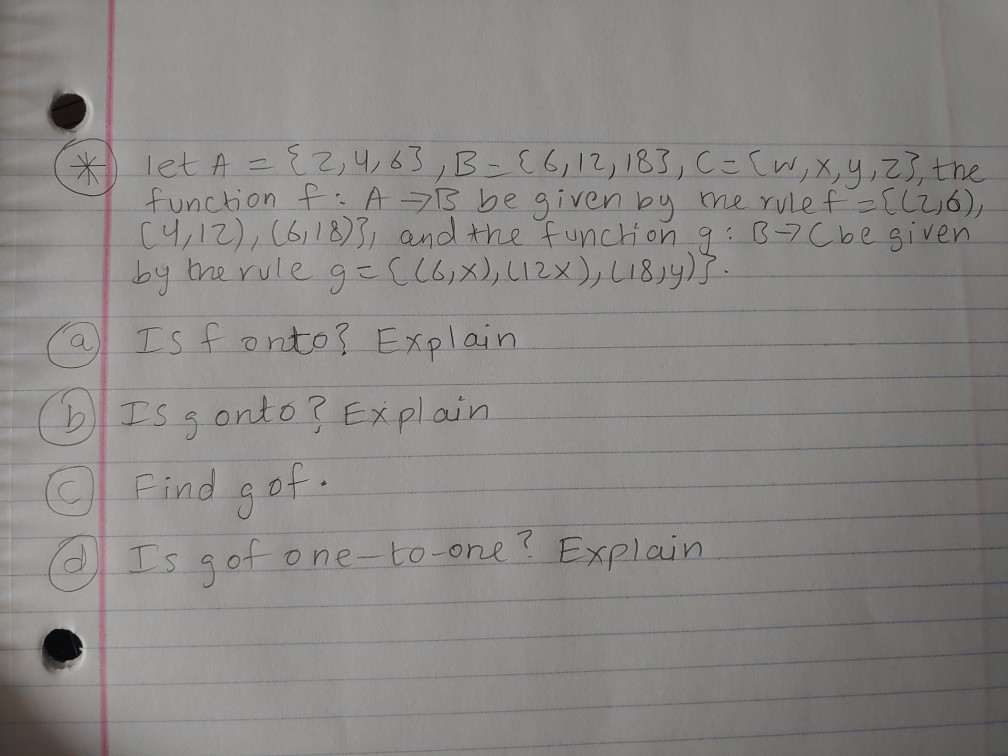 * let A = {2,4,6}, B = {6,12,18}, C = {w,x,y,z}, the
function f : A → B be given by the rule f = {(2,6),
(4,12), (6,18)}, and the function g : B → C be given
by the rule g = {(6,x),(12x),(18,y)}.
a Is f onto? Explain
b Is g onto? Explain
c Find gof.
d Is gof one-to-one? Explain